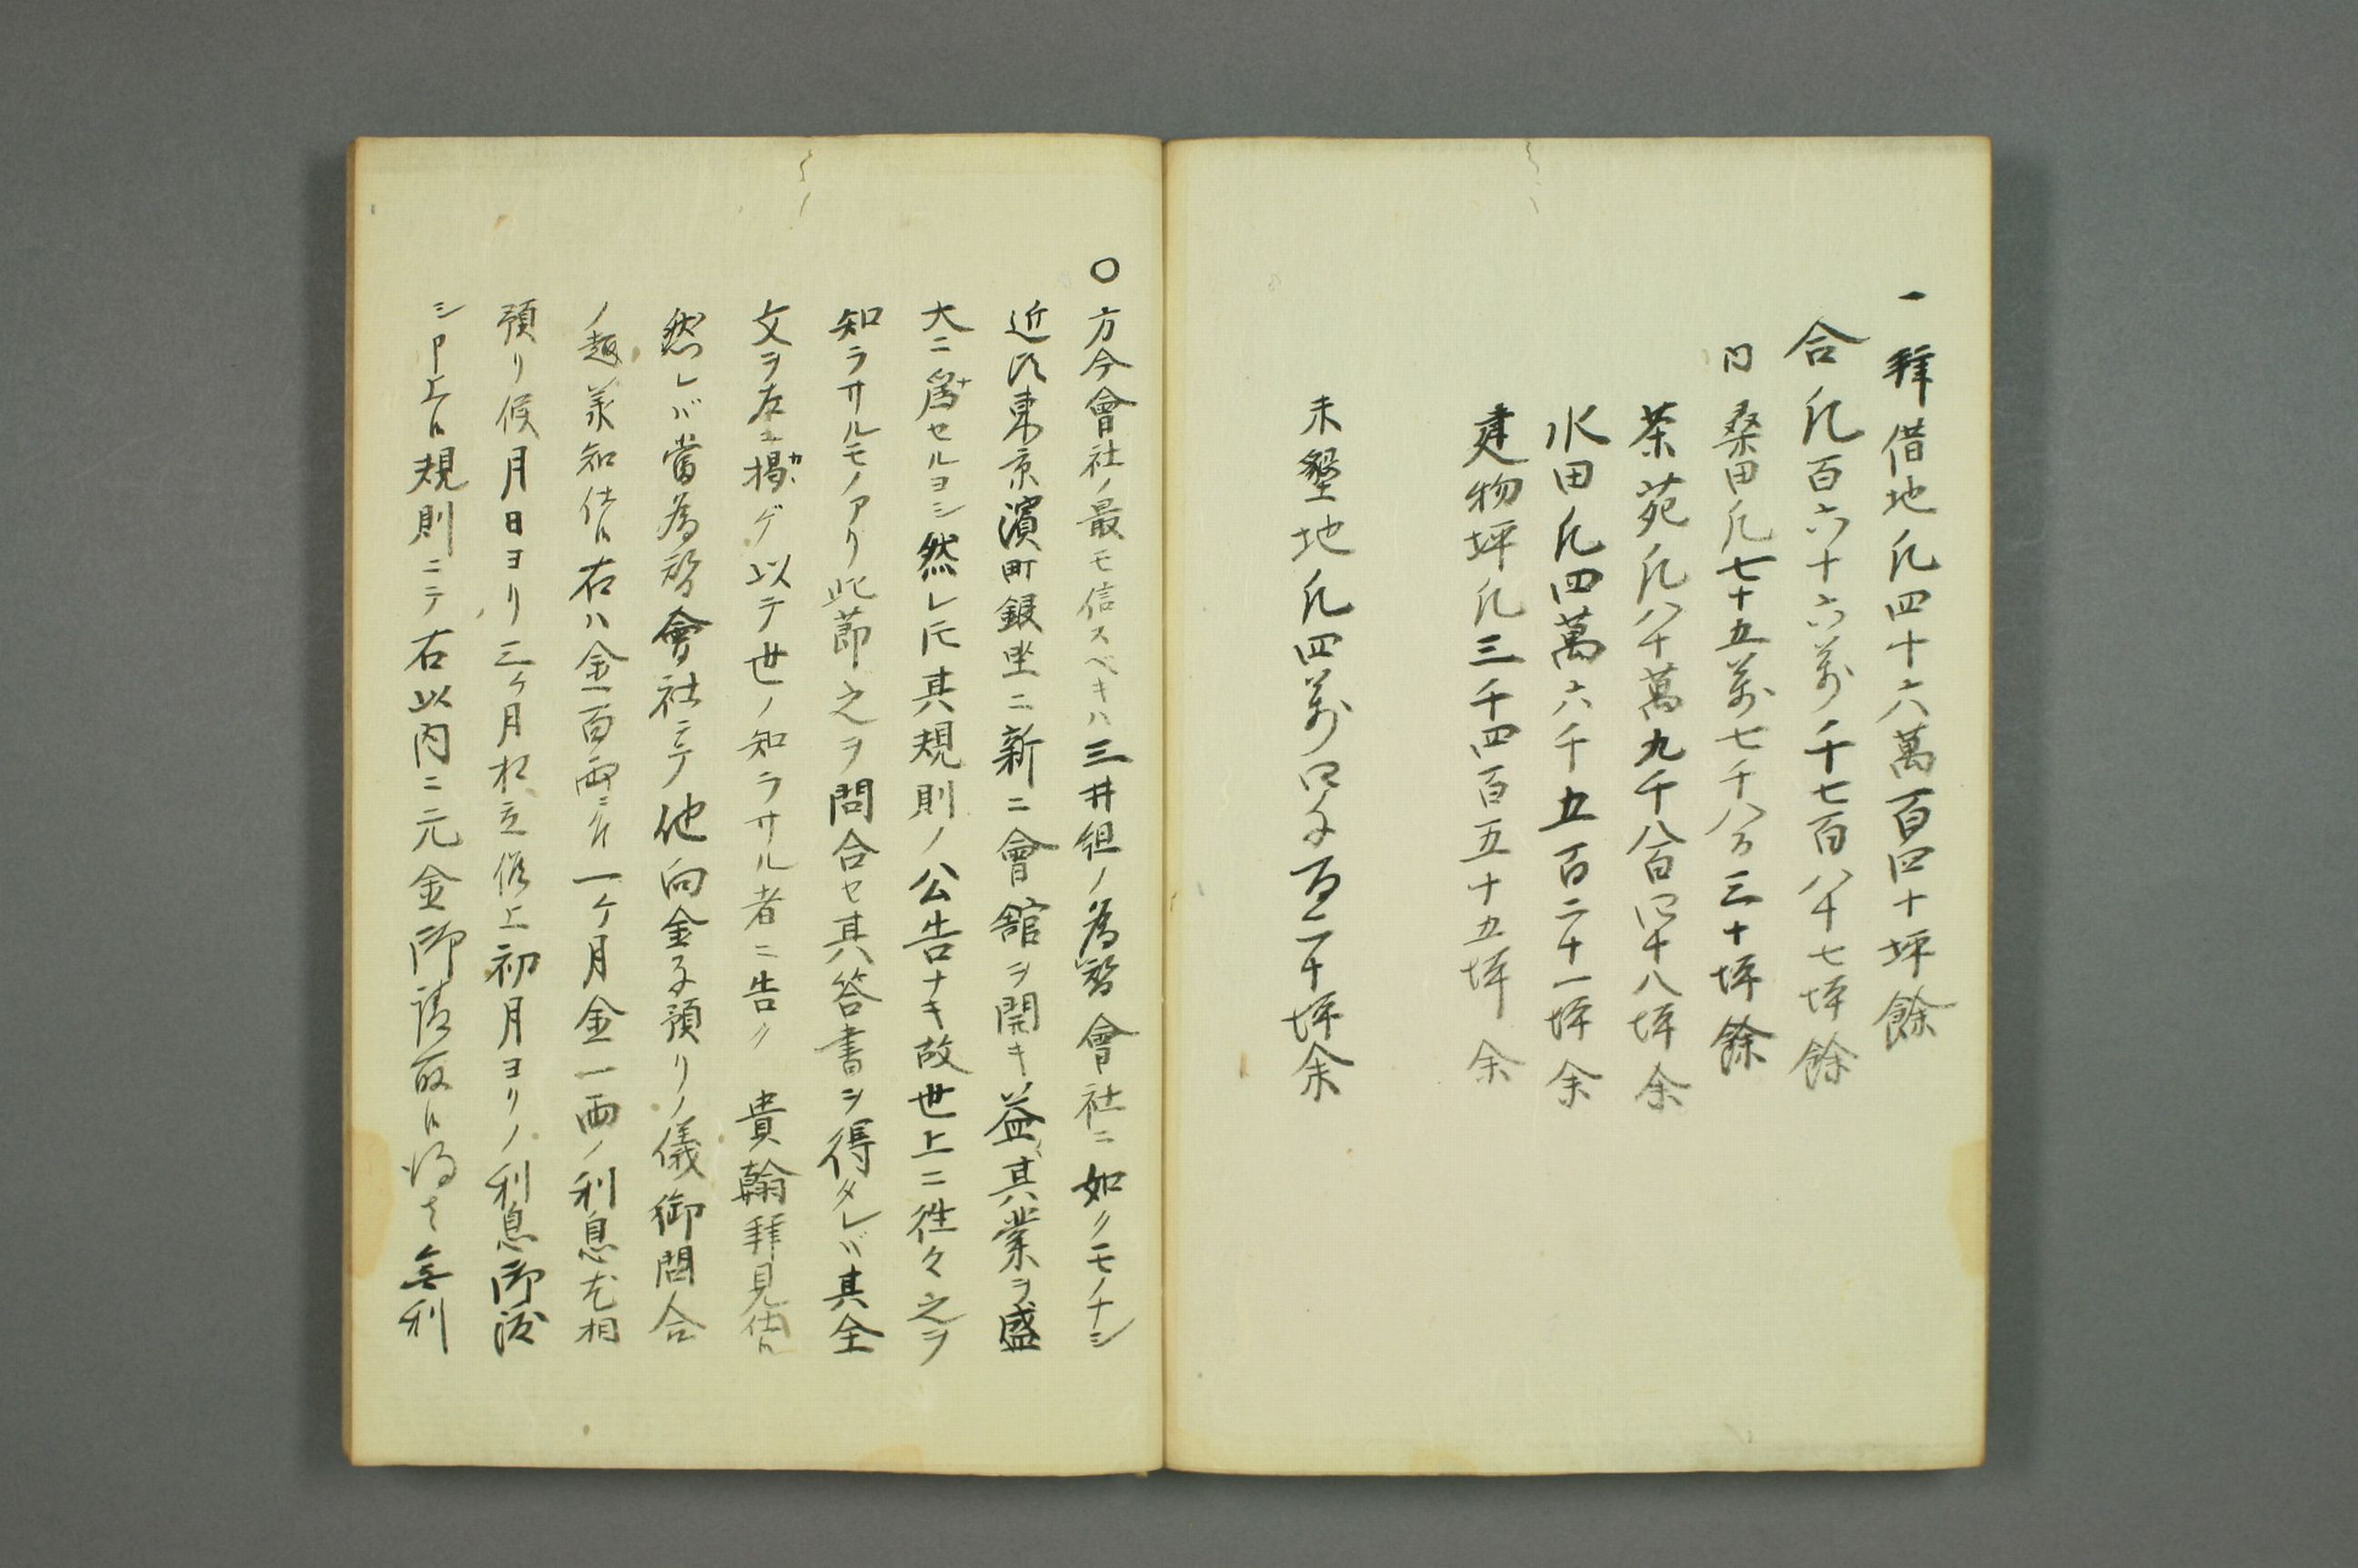 一拜借地凡四十六萬百四十坪餘
合凡百六十六萬千七百八十七坪餘
内桑田凡七十五萬七千八百三十坪餘
茶苑凡八十萬九千八百四十八坪余
水田凡四萬六千五百二十一坪余
建物坪凡三千四百五十五坪余
未墾地凡四萬四千百二十坪余
〇方今會社ノ最モ信スベキハ三井組ノ為替會社ニ如クモノナシ
近頃東京濱町銀坐ニ新ニ會舘ヲ開キ益其業ヲ盛
大ニ爲ナセルヨシ然レ𪜈其規則ノ公告ナキ故世上ニ徃々之ヲ
知ラサルモノアリ此節之ヲ問合セ其答書ヲ得タレバ其全
文ヲ左ニ揭カヽゲ以テ世ノ知ラサル者ニ告ク 貴翰拜見仕候
然レバ當為替會社ニテ他向金子預リノ儀御問合
ノ趣義知仕候右ハ金百兩ニ付一ケ月金一兩ノ利息尤相
預リ候月日ヨリ三ケ月相立候上初月ヨリノ利息御渡
シ申上候規則ニテ右以内ニ元金御請取候得者無利